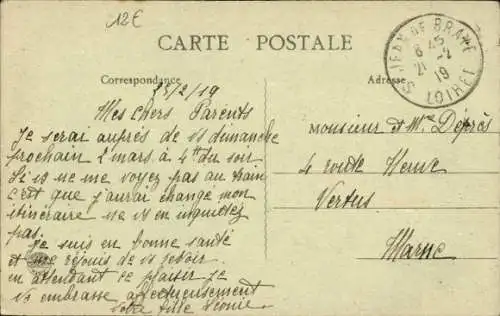 12€
CARTE POSTALE
Correspondance
Adresse
ST JEAN DE BRAYE
8 45
21 -2
19
LOIRET
25/2/19
Mes chers Parents
Je serai auprès de vs dimanche
prochain 2 mars à 4 hs du soir
Si vs ne me voyez pas au train
c'est que j'aurai changé mon
itineraire ne vs en inquietez
pas.
Je suis en bonne santé
et me rejouis de vs revoir
en attendant ce plaisir je
vs embrasse affectueusement
Votre fille Léonie
Monsieur et Mme Déprès
4 route
Vertus
Marne